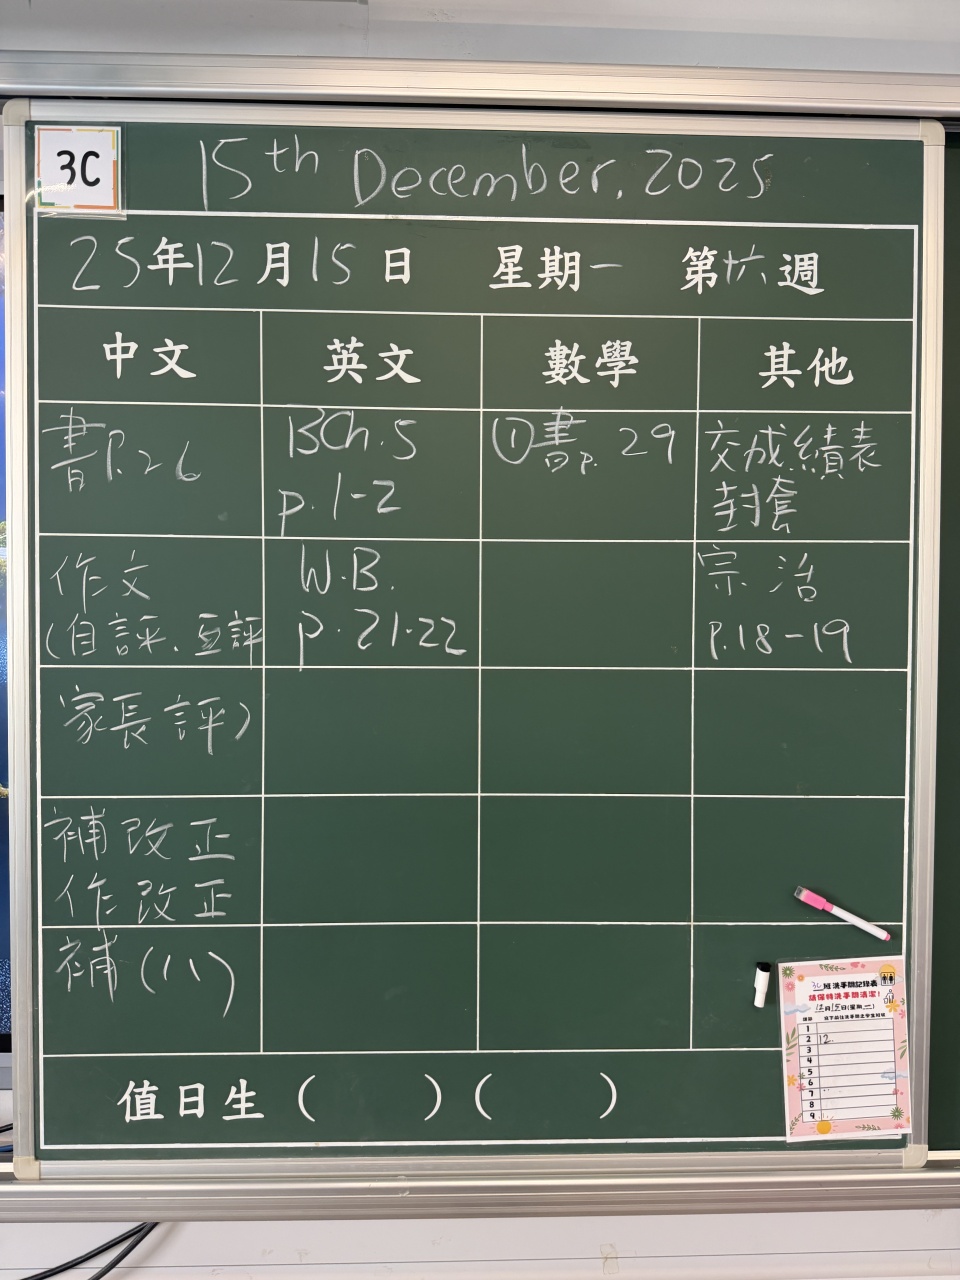 3C
15th December, 2025
25年12月15日 星期一 第十六週
中文 英文 數學 其他
書P.26
作文
(自評、互評
家長評)
補改正
作改正
補(八)
BCh.5
p.1-2
W.B.
p.21-22
①書p.29
交成績表
封套
宗活
P.18-19
值日生( )( )
3C班洗手間記錄表
請保持洗手間清潔!
12月15日(星期一)
1
2 12
3
4
5
6
7
8
9